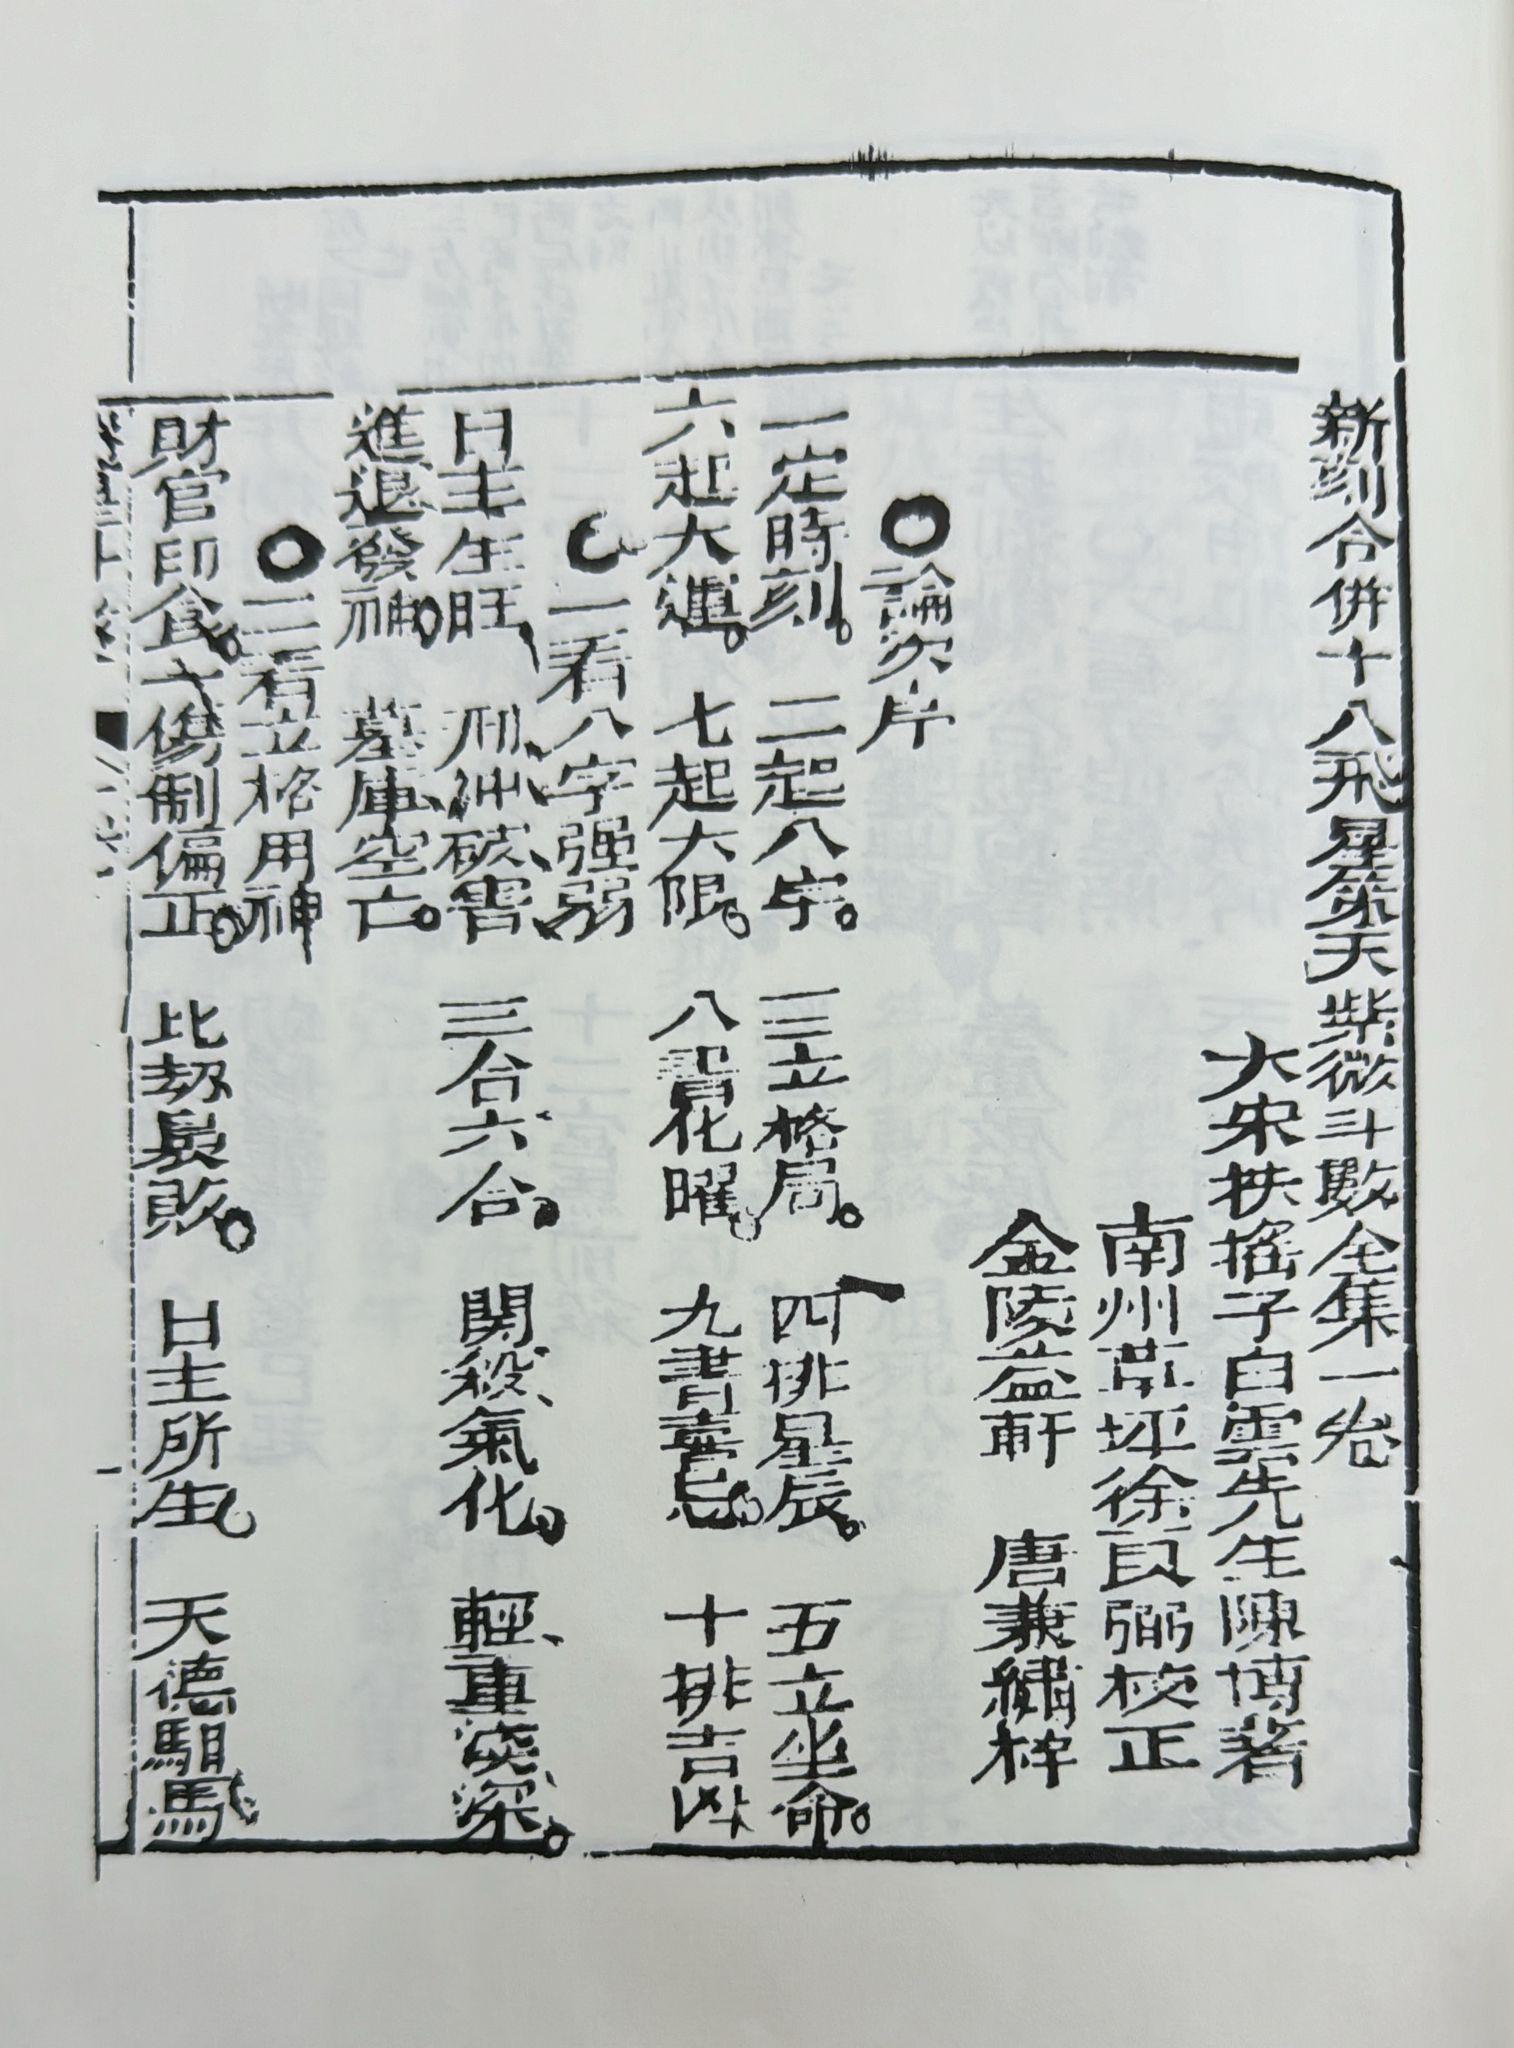 新刻合併十八飛星策天紫微斗數全集一卷
大宋扶搖子白雲先生陳摶著
南州 坪徐良弼校正
金陵益軒 唐兼繡梓
〇論次序
一定時刻。 二起八字。 三立格局。 四排星辰。 五立坐命。
六起大運。 七起大限。 八 化曜。 九書 忌。 十排吉凶
〇一看八字强弱
日主生旺、 刑、沖、破、害、 三合六合。 關、殺、氣化。 輕、重、淺、深。
進退發神。 墓庫空亡。
〇二看立格用神
財官印食。 傷制偏正。 比刼 敗。 日主所生。 天德馹馬。